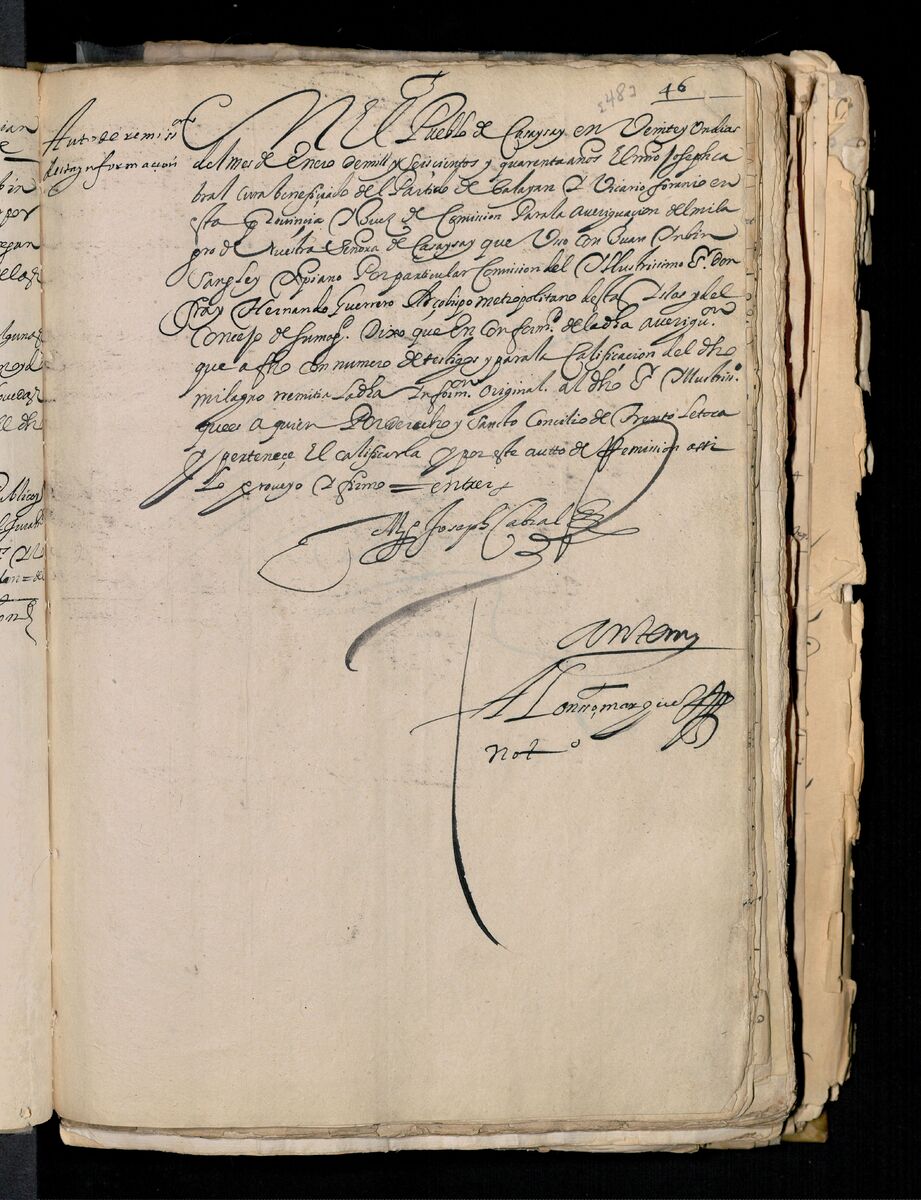 46
2482
Auto de remis.on
de la ynformaçion
En El Pueblo de Casaysay en Veinte y Un dias
del mes de Enero de mill y seiscientos y quarenta años El mro Joseph ca
bral cura beneficiado del Partido de Balayan Y Vicario foraneo en
esta Provincia Y Juez de Comision Para la averiguacion del mila
gro de Nuestra Señora de Casaysay que Uso con Juan Inbin
Sangley Xpiano Por particular Comision del Illustrissimo S.r Don
fray Hernando Guerrero Arçobispo metropolitano destas Islas y del
Consejo de su mag.d Dixo que en conform.d de la dha averigu.on
que a fho con numero de testigos y para la Calificacion del dho
milagro remitia La dha Inform.on original al dho S.r Illustris.o
ques a quien Por derecho y Sancto Concilio de Trento Le toca
y pertenece El calificarla y por este autto de Remision assi
Lo proveyo Y firmo = entre r
M.o Joseph Cabral
Antemy
Alonso marques
not.o